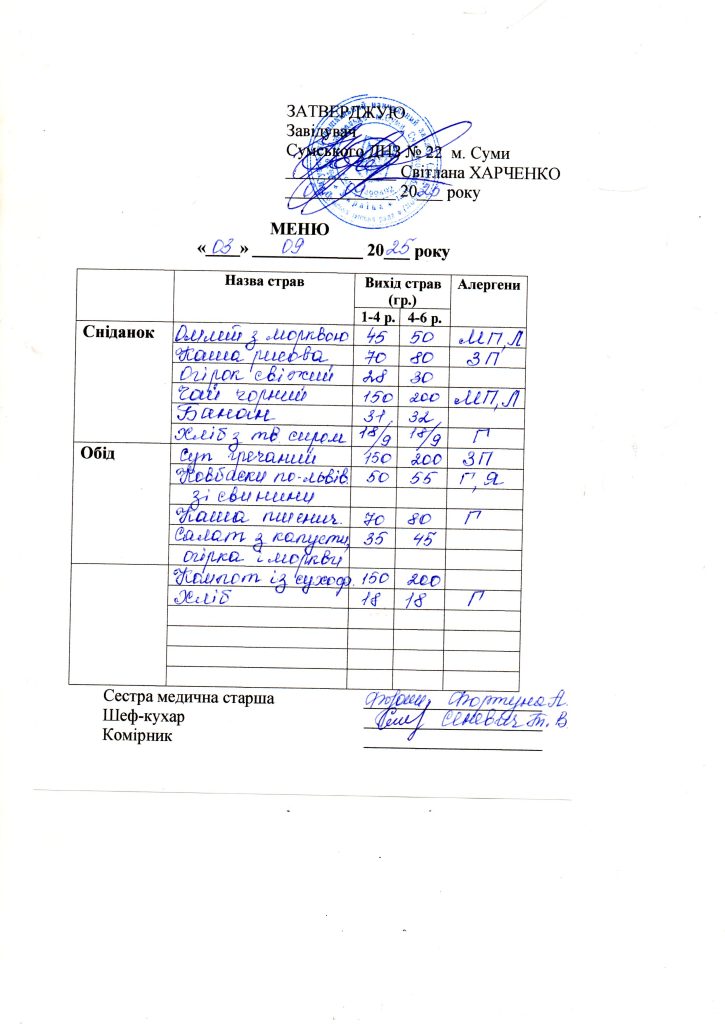 ЗАТВЕРДЖУЮ
Завідувач
Сумського ДНЗ № 22 м. Суми
Світлана ХАРЧЕНКО
20 року
МЕНЮ
«03» 09 2025 року
Назва страв Вихід страв (гр.) Алергени
1-4 р. 4-6 р.
Сніданок Омлет з морквою 45 50 МП, Л
Каша рисова 70 80 ЗП
Огірок свіжий 28 30
Чай чорний 150 200 МП, Л
Банан 31 32
Хліб з тв сиром 18/9 18/9 Г
Обід Суп гречаний 150 200 ЗП
Ковбаски по-львів. 50 55 Г, Я
зі свинини
Каша пшенич. 70 80 Г
Салат з капусти, 35 45
огірка і моркви
Компот із сухоф. 150 200
Хліб 18 18 Г
Сестра медична старша Фортуна А.
Шеф-кухар Сеневич Т. В.
Комірник